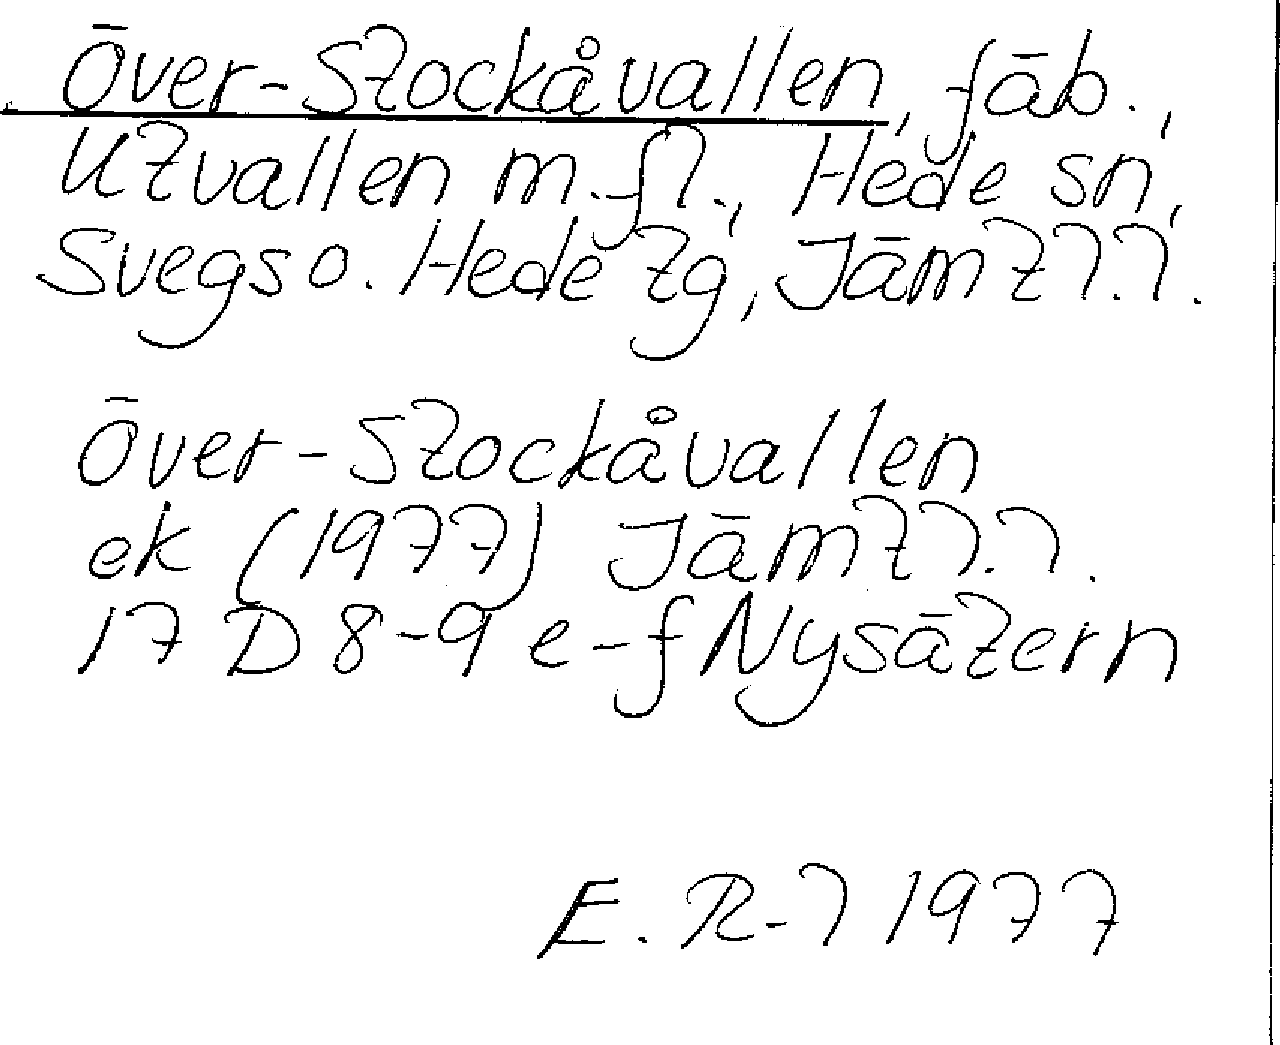 Över-Stockåvallen, fäb.,
Utvallen m.fl., Hede sn,
Svegs o. Hede tg, Jämtl.l.
Över-Stockåvallen
ek (1977) Jämtl.l.
17 D 8-9 e-f Nysätern
E. R-l 1977